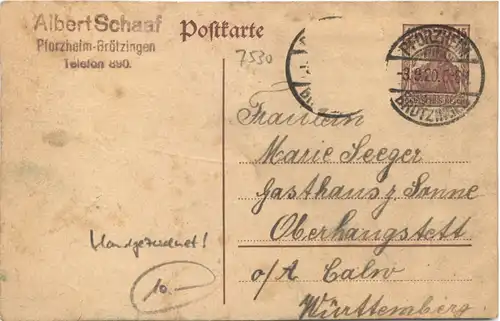 Albert Schaaf
Pforzheim-Brötzingen
Telefon 890.
Postkarte
7530
PFORZHEIM
BRÖTZINGEN
Fräulein
Marie Seeger
Gasthaus z Sonne
Oberhaugstett
o/A Calw
Württemberg
Handgezeichnet!
10.-